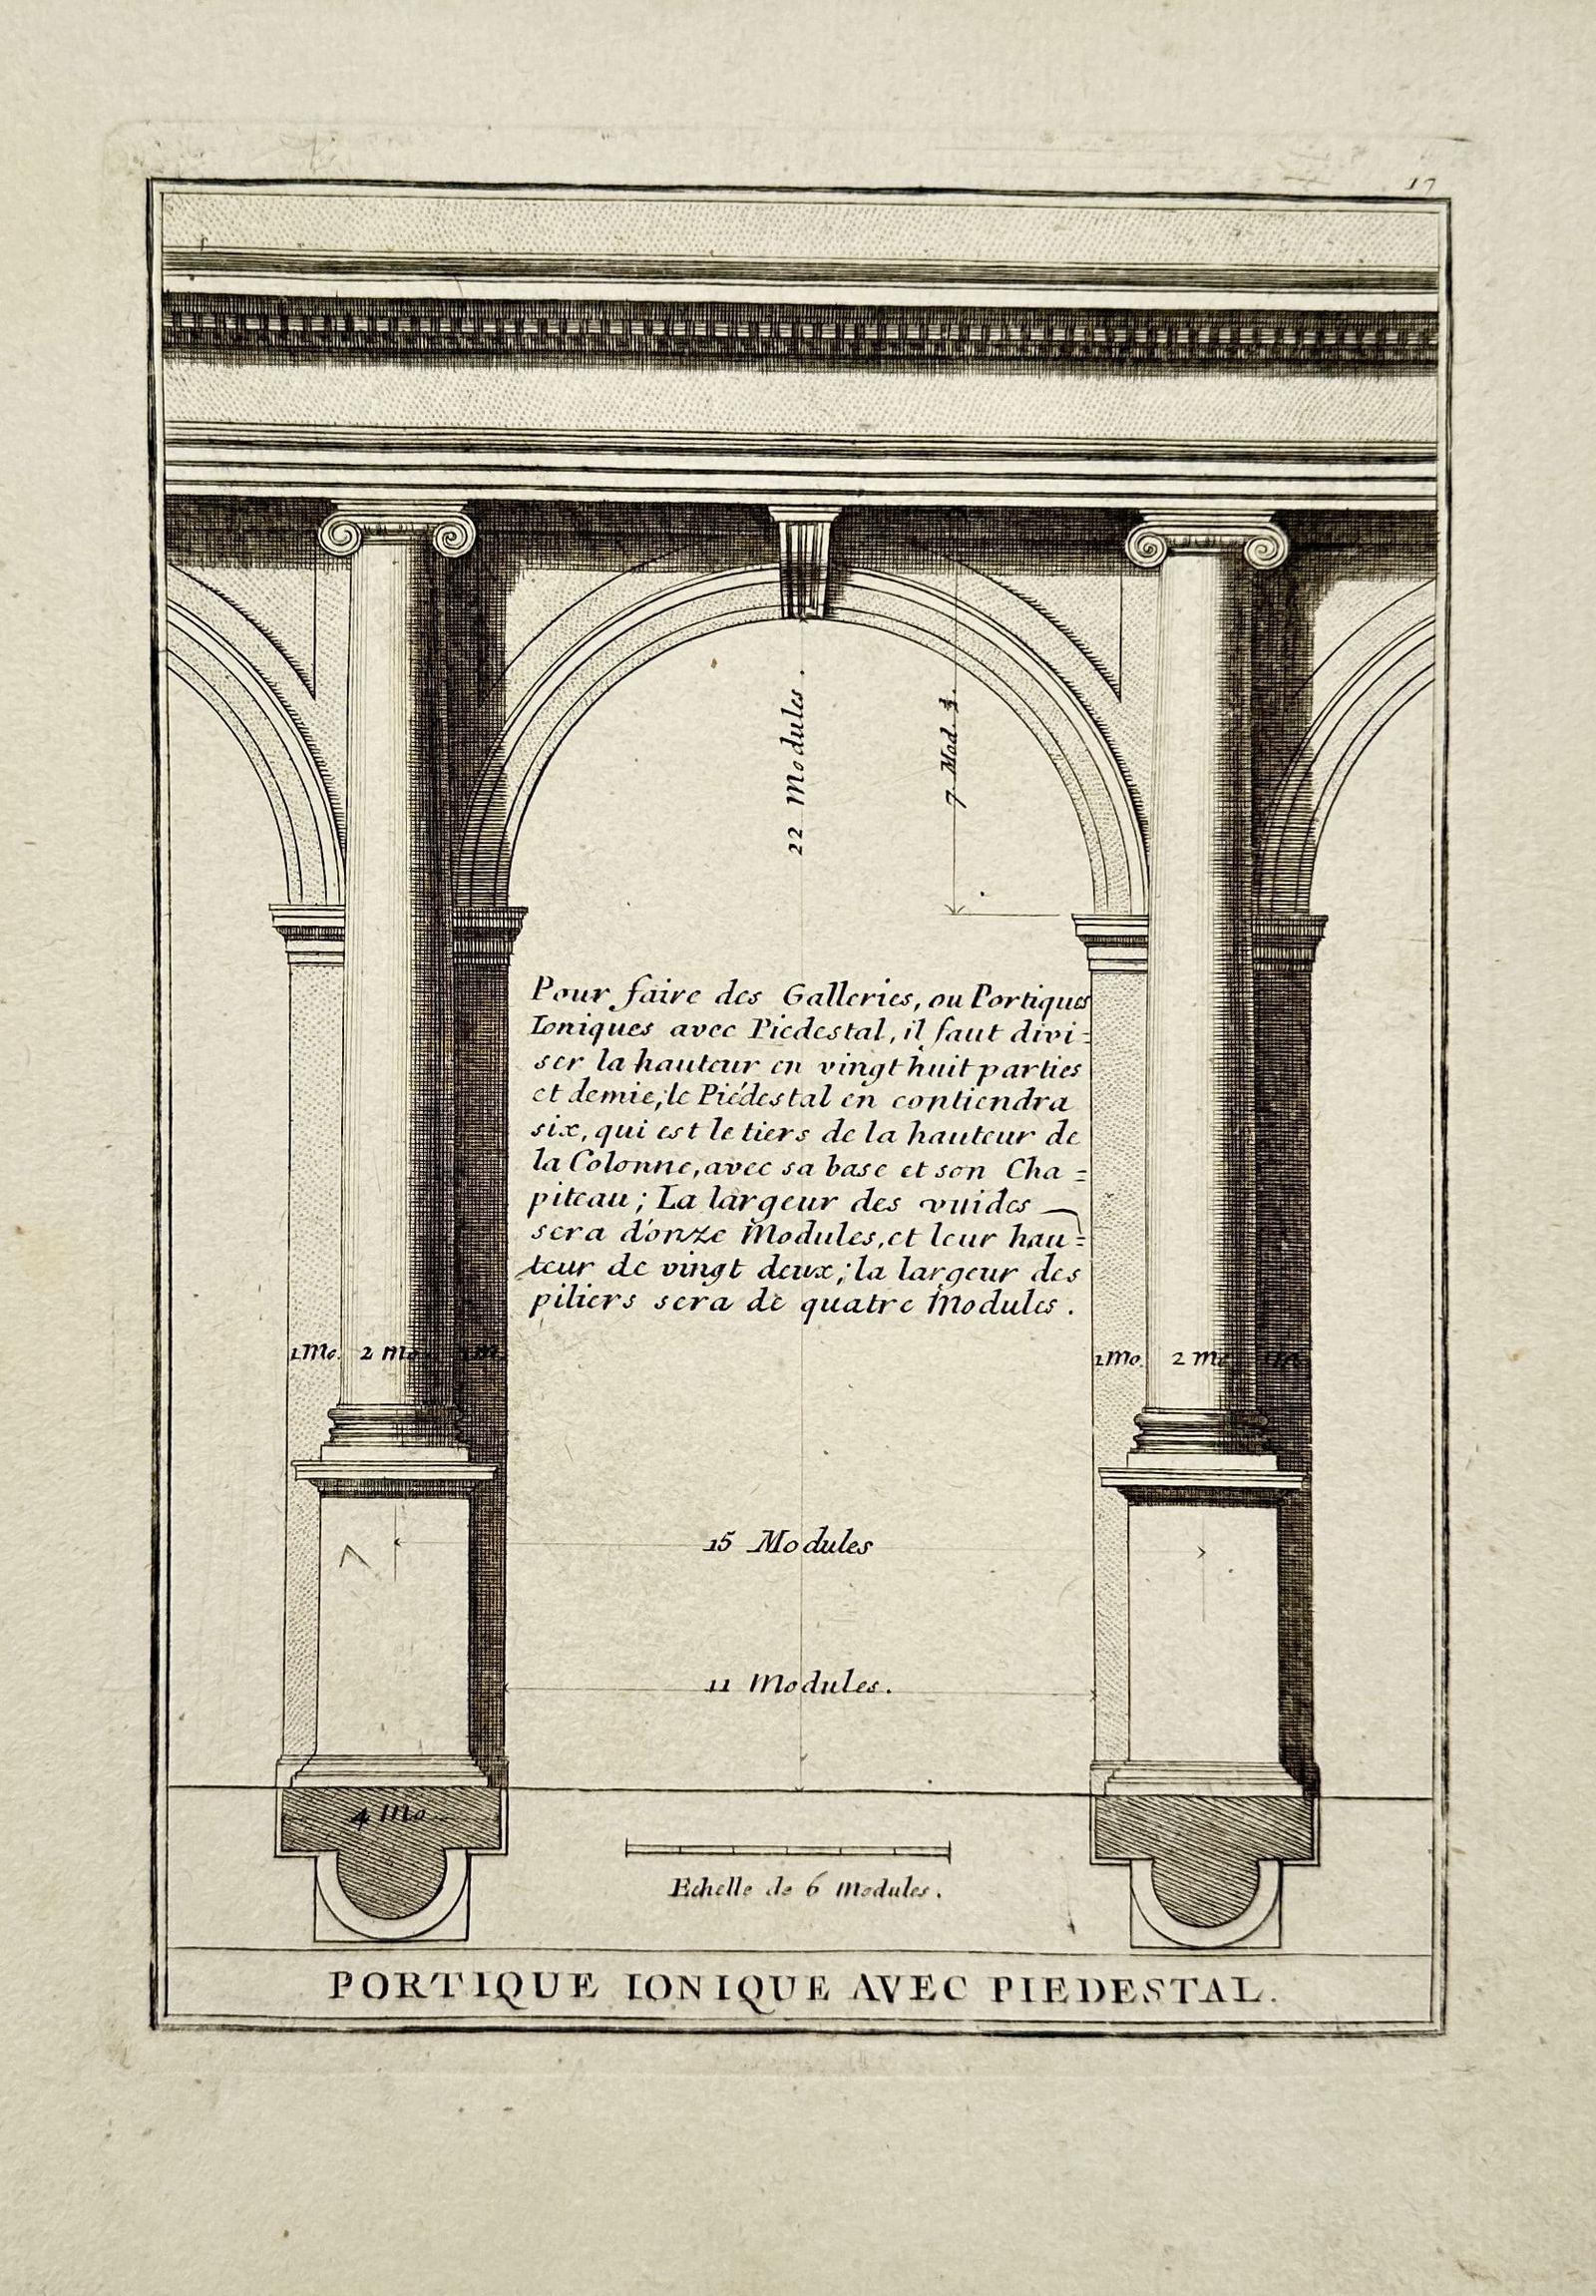 17
22 Modules.
7 Mod. ½.
Pour faire des Galleries, ou Portiques
Ioniques avec Piedestal, il faut divi=
ser la hauteur en vingt huit parties
et demie; le Piédestal en contiendra
six, qui est le tiers de la hauteur de
la Colonne, avec sa base et son Cha=
piteau; La largeur des vuides
sera d'onze Modules, et leur hau=
teur de vingt deux; la largeur des
piliers sera de quatre Modules.
1 Mo. 2 Mo. 1 M. 1 Mo. 2 Mo
15 Modules
11 Modules.
4 Mo
Echelle de 6 Modules.
PORTIQUE IONIQUE AVEC PIEDESTAL.